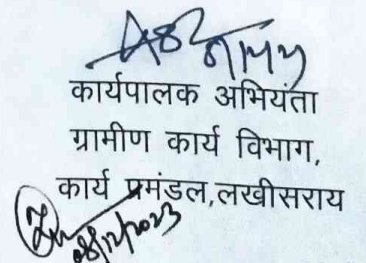 कार्यपालक अभियंता
ग्रामीण कार्य विभाग,
कार्य प्रमंडल,लखीसराय
08/12/2023